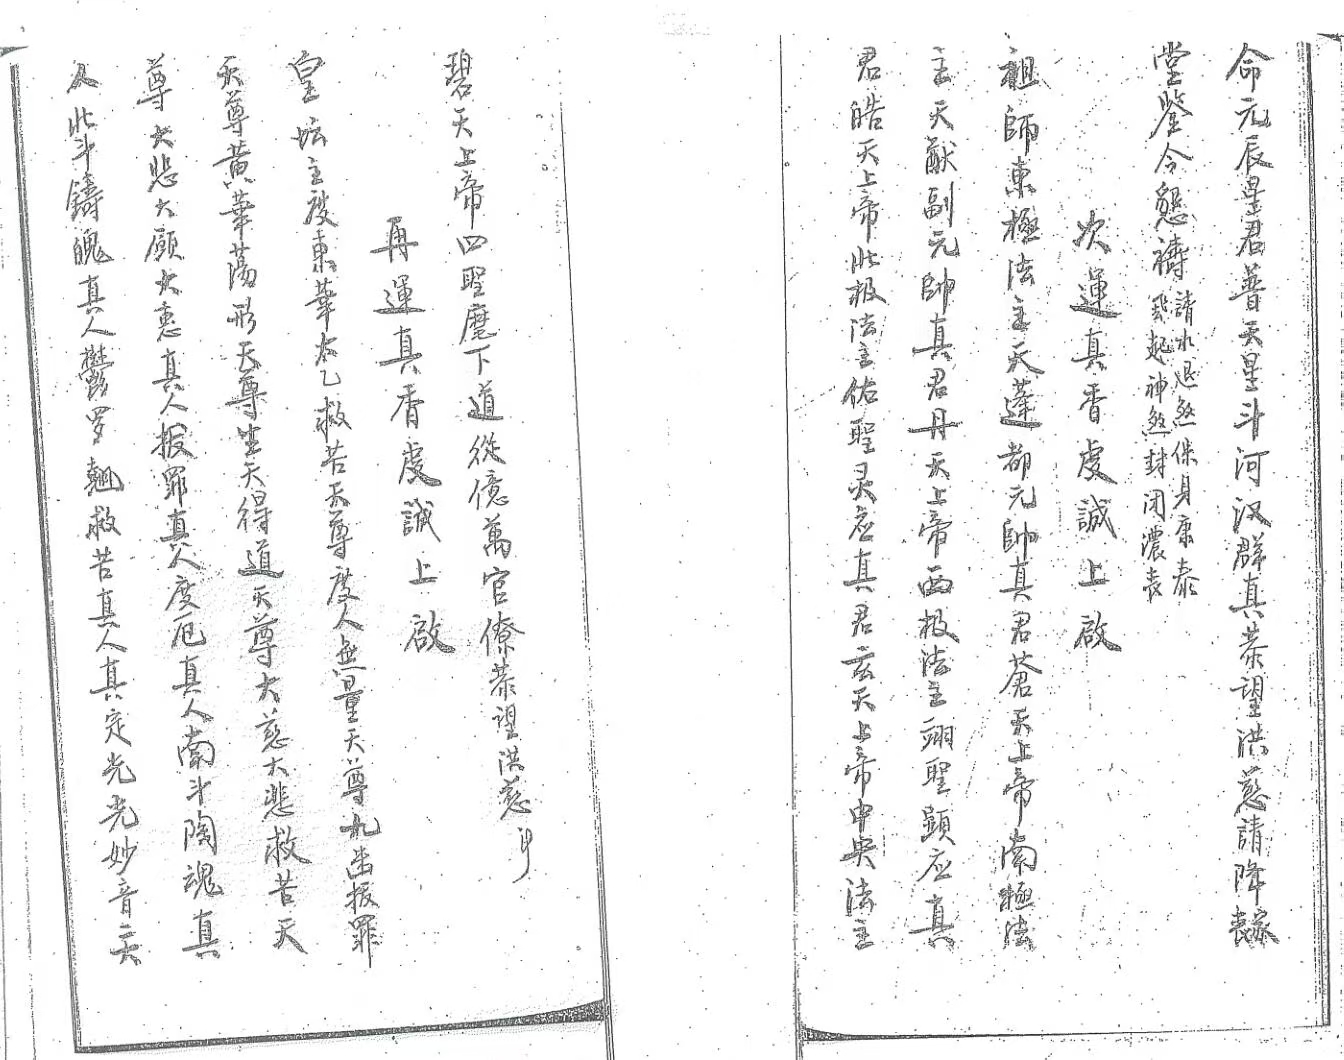 命元辰星君普天星斗河汉群真恭望洪慈請降喪家
堂鑒今懇禱請水退煞保身康泰
起神煞封闭濃丧
次運真香虔誠上啟
祖師東極法主天蓬都元帥真君蒼天上帝南極法
主天猷副元帥真君丹天上帝西极法主翊聖顕应真
君皓天上帝北极法主佑聖灵应真君玄天上帝中央法主
碧天上帝四聖麾下道從億萬官僚恭望洪慈
再運真香虔誠上啟
皇坛主度東華太乙救苦天尊度人無量天尊九幽拔罪
天尊黄華蕩形天尊生天得道天尊大慈大悲救苦天
尊大悲大願大惠真人拔罪真人度厄真人南斗陶魂真
人北斗鑄魄真人鬱罗翹救苦真人真定光光妙音二大